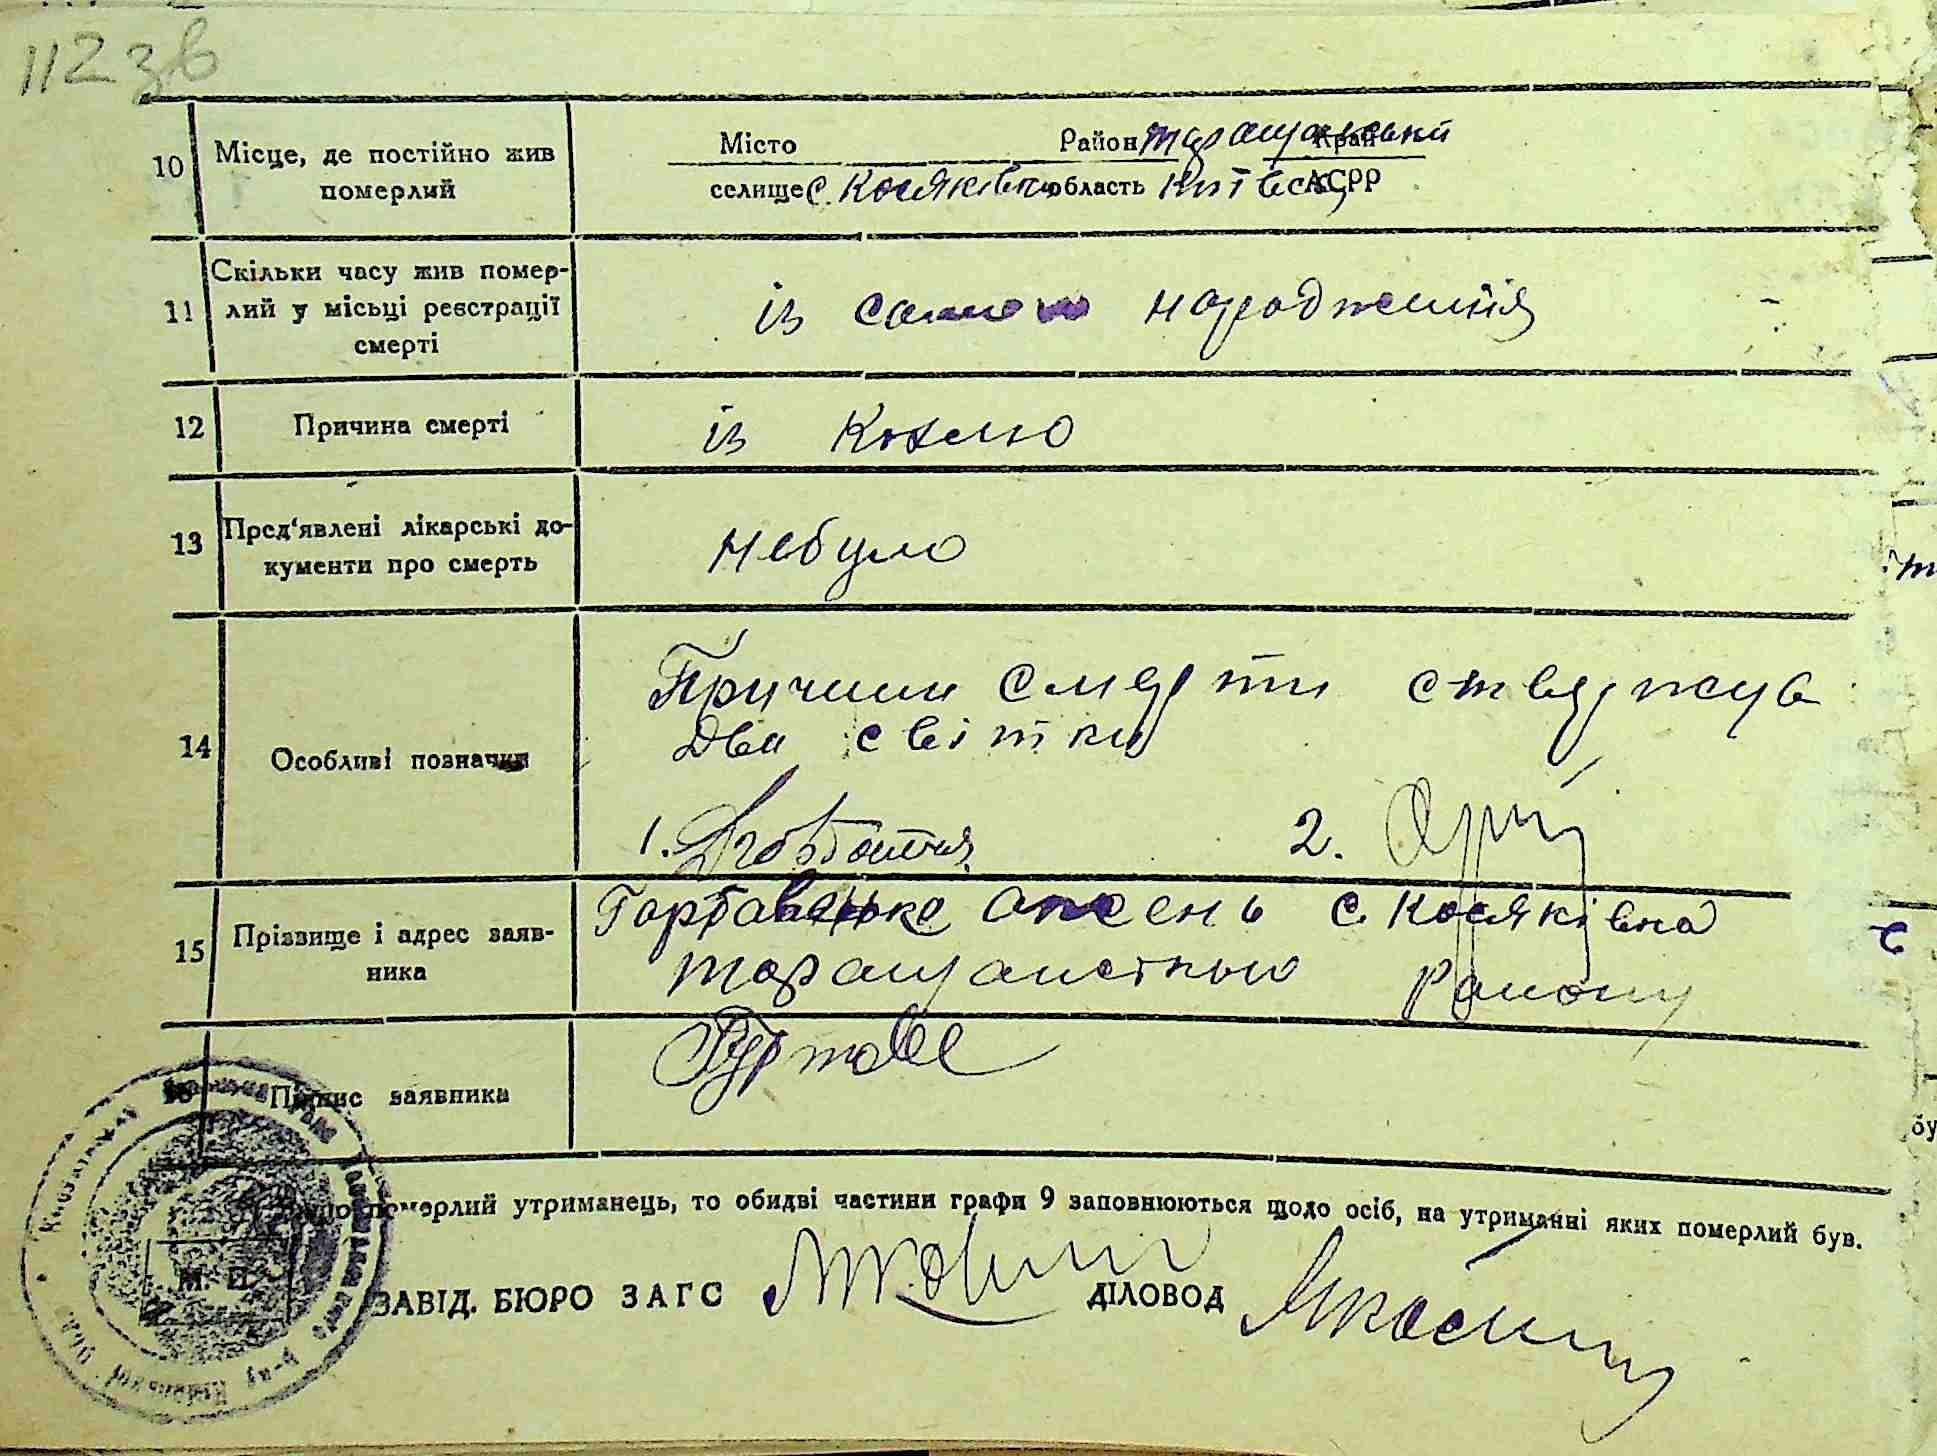 112 зв
10 Місце, де постійно жив померлий Місто Район Таращанський Край
селище с. Косяківка область Київська АСРР
11 Скільки часу жив померлий у місьці реєстрації смерті із самого народження
12 Причина смерті із Коклю
13 Пред'явлені лікарські документи про смерть небуло
14 Особливі позначки Причини смерти ствержув
два світки
1. 2.
15 Прізвище і адрес заявника Горбавенко с Косяківка
Таращанського Району
16 Підпис заявника
Якщо померлий утриманець, то обидві частини графи 9 заповнюються щодо осіб, на утриманні яких померлий був.
М. П. ЗАВІД. БЮРО ЗАГС ДІЛОВОД